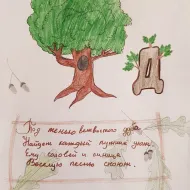 Д
Под тенью ветвистого дуба
Найдет каждый путник уют
Ему соловей и синица
Веселую песню споют.